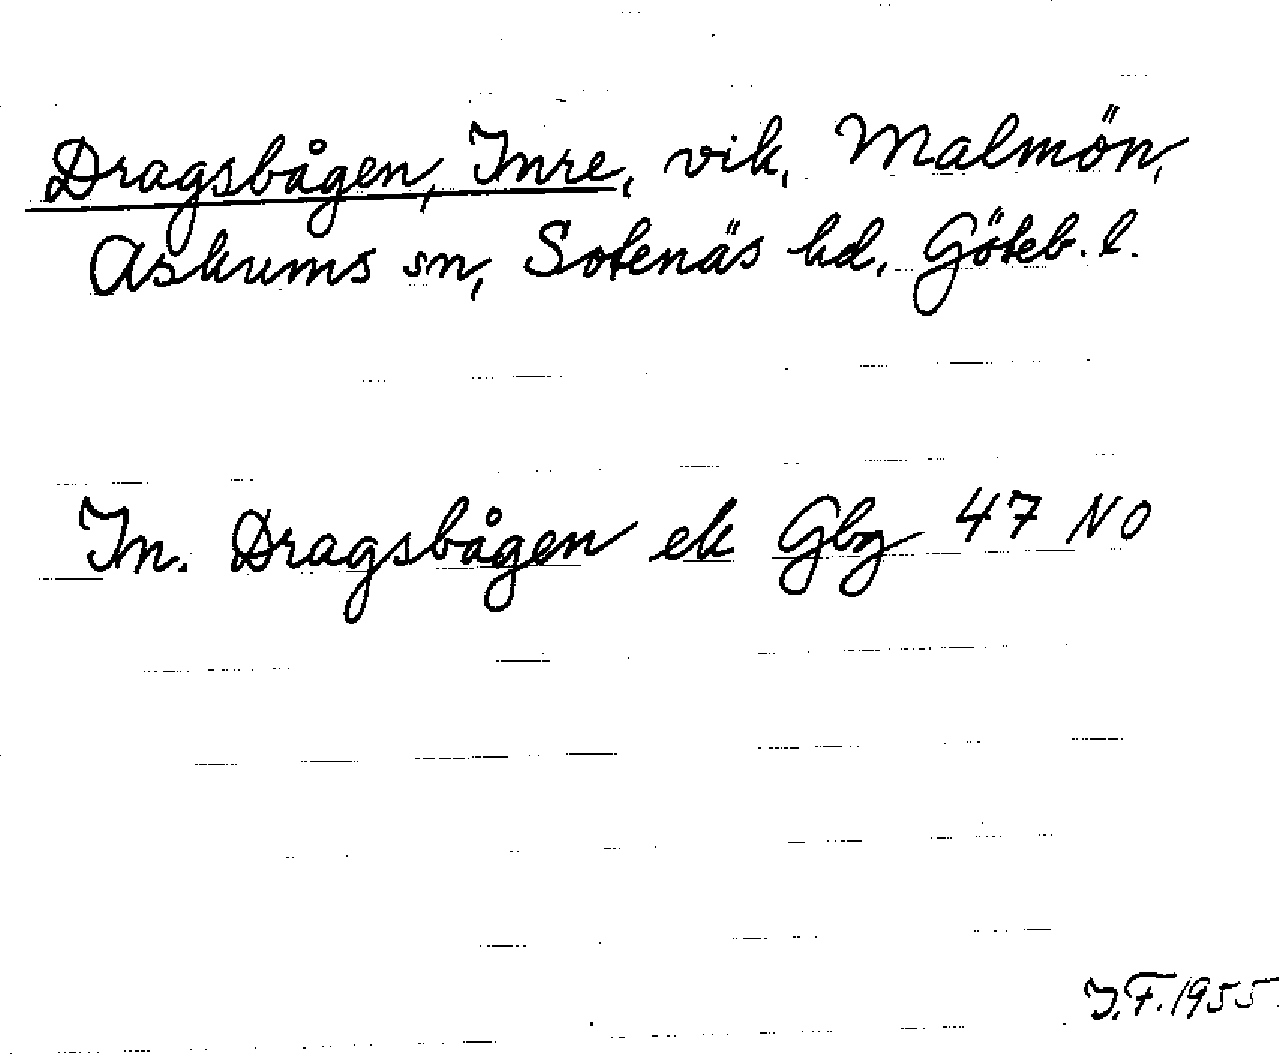 Dragsbågen, Inre, vik, Malmön,
Askums sn, Sotenäs hd, Göteb. l.
In. Dragsbågen ek Gbg 47 NO
I.F. 1955.